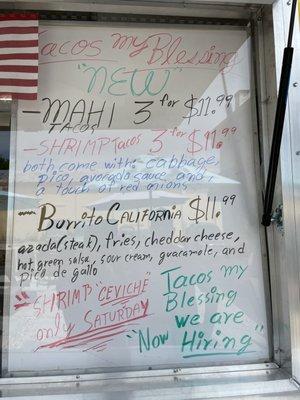 Tacos my Blessing
"NEW"
-MAHI 3 for $11.99
TACOS
-SHRIMP Tacos 3 for $11.99
both come with: cabbage,
pico, avocado sauce and,
a touch of red onions
- Burrito California $11.99
azada(steak), fries, cheddar cheese,
hot green salsa, sour cream, guacamole, and
pico de gallo
"SHRIMP "CEVICHE"
only SATURDAY
Tacos my
Blessing
we are
"Now Hiring"